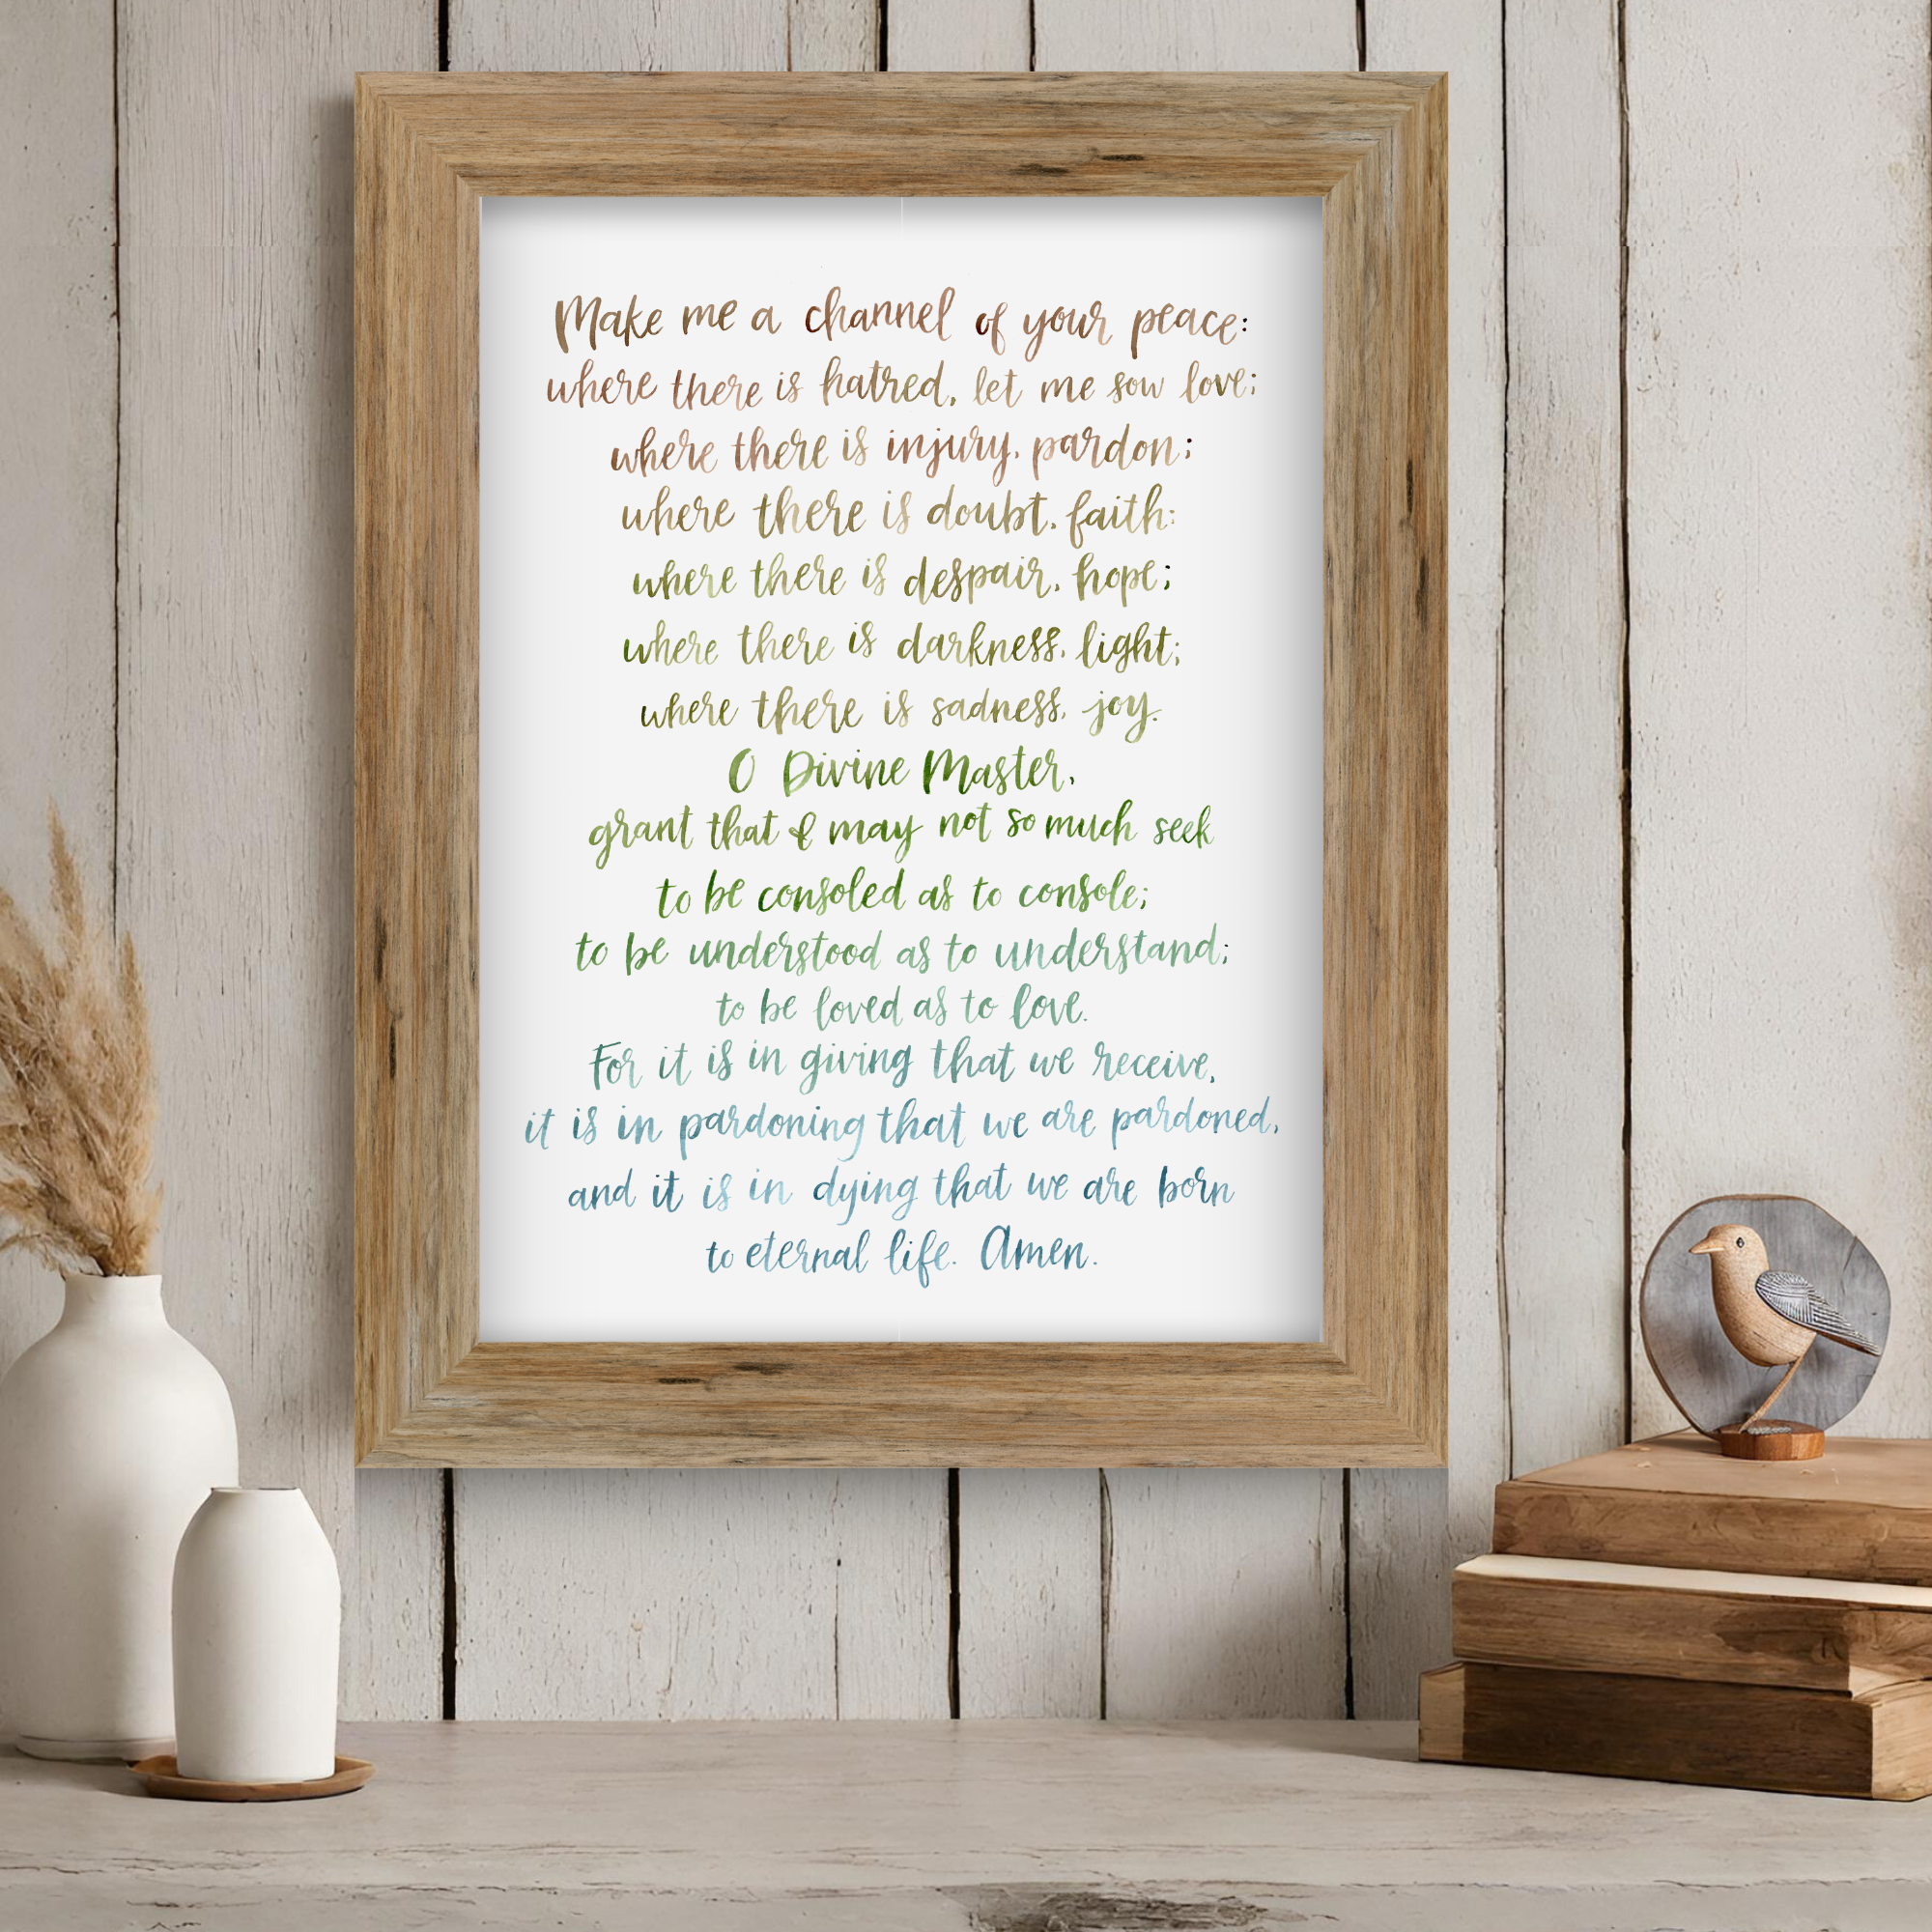 Make me a channel of your peace:
where there is hatred, let me sow love;
where there is injury, pardon;
where there is doubt, faith;
where there is despair, hope;
where there is darkness, light;
where there is sadness, joy.
O Divine Master,
grant that I may not so much seek
to be consoled as to console;
to be understood as to understand;
to be loved as to love.
For it is in giving that we receive,
it is in pardoning that we are pardoned,
and it is in dying that we are born
to eternal life. Amen.